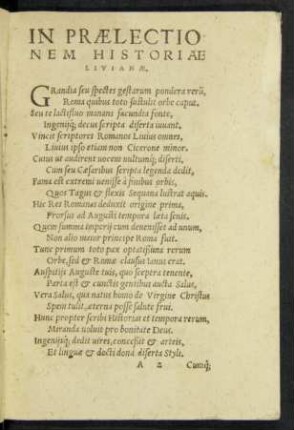 IN PRÆLECTIO
NEM HISTORIAE
LIVIANÆ.
GRandia seu spectes gestarum pondera rerū,
Roma quibus toto sustulit orbe caput.
Seu te lactifluo manans facundia fonte,
Ingenijq; decus scripta diserta iuuant.
Vincit scriptores Romanos Liuius omneis,
Liuius ipso etiam non Cicerone minor.
Cuius ut audirent uocem uultumq; diserti,
Cum seu Cæsaribus scripta legenda dedit,
Fama est extremi uenisse à finibus orbis,
Quos Tagus & flexis Sequana lustrat aquis.
Hic Res Romanas deducit origine prima,
Prorsus ad Augusti tempora læta senis.
Quem summa imperij cum deuenisset ad unum,
Non alio maior principe Roma fuit.
Tunc primum toto pax optatissima rerum
Orbe, sed & Romæ clausus Ianus erat.
Auspitijs Auguste tuis, quo sceptra tenente,
Parta est & cunctis gentibus aucta Salus,
Vera Salus, qua natus homo de Virgine Christus
Spem tulit, æterna posse salute frui.
Hunc propter scribi Historias et tempora rerum,
Miranda uoluit pro bonitate Deus.
Ingenijsq; dedit uires, concessit & arteis,
Et linguæ & docti dona diserta Styli.
A 2 Cumq;